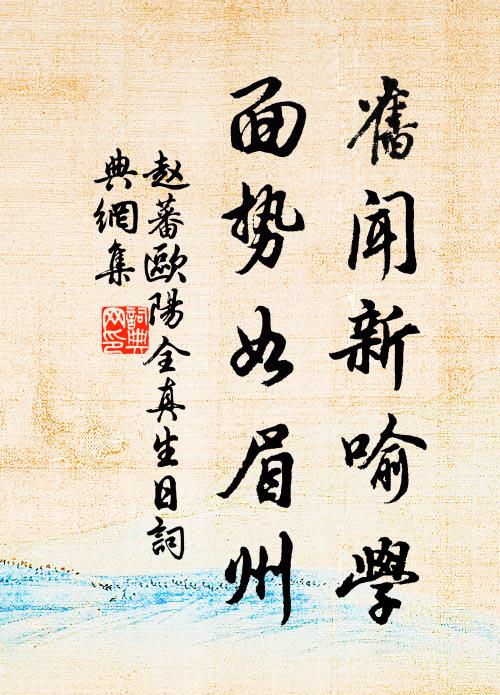 舊闻新喻學
面势如眉州
赵蕃歐陽全真生日詞
典網集
詞典
网印